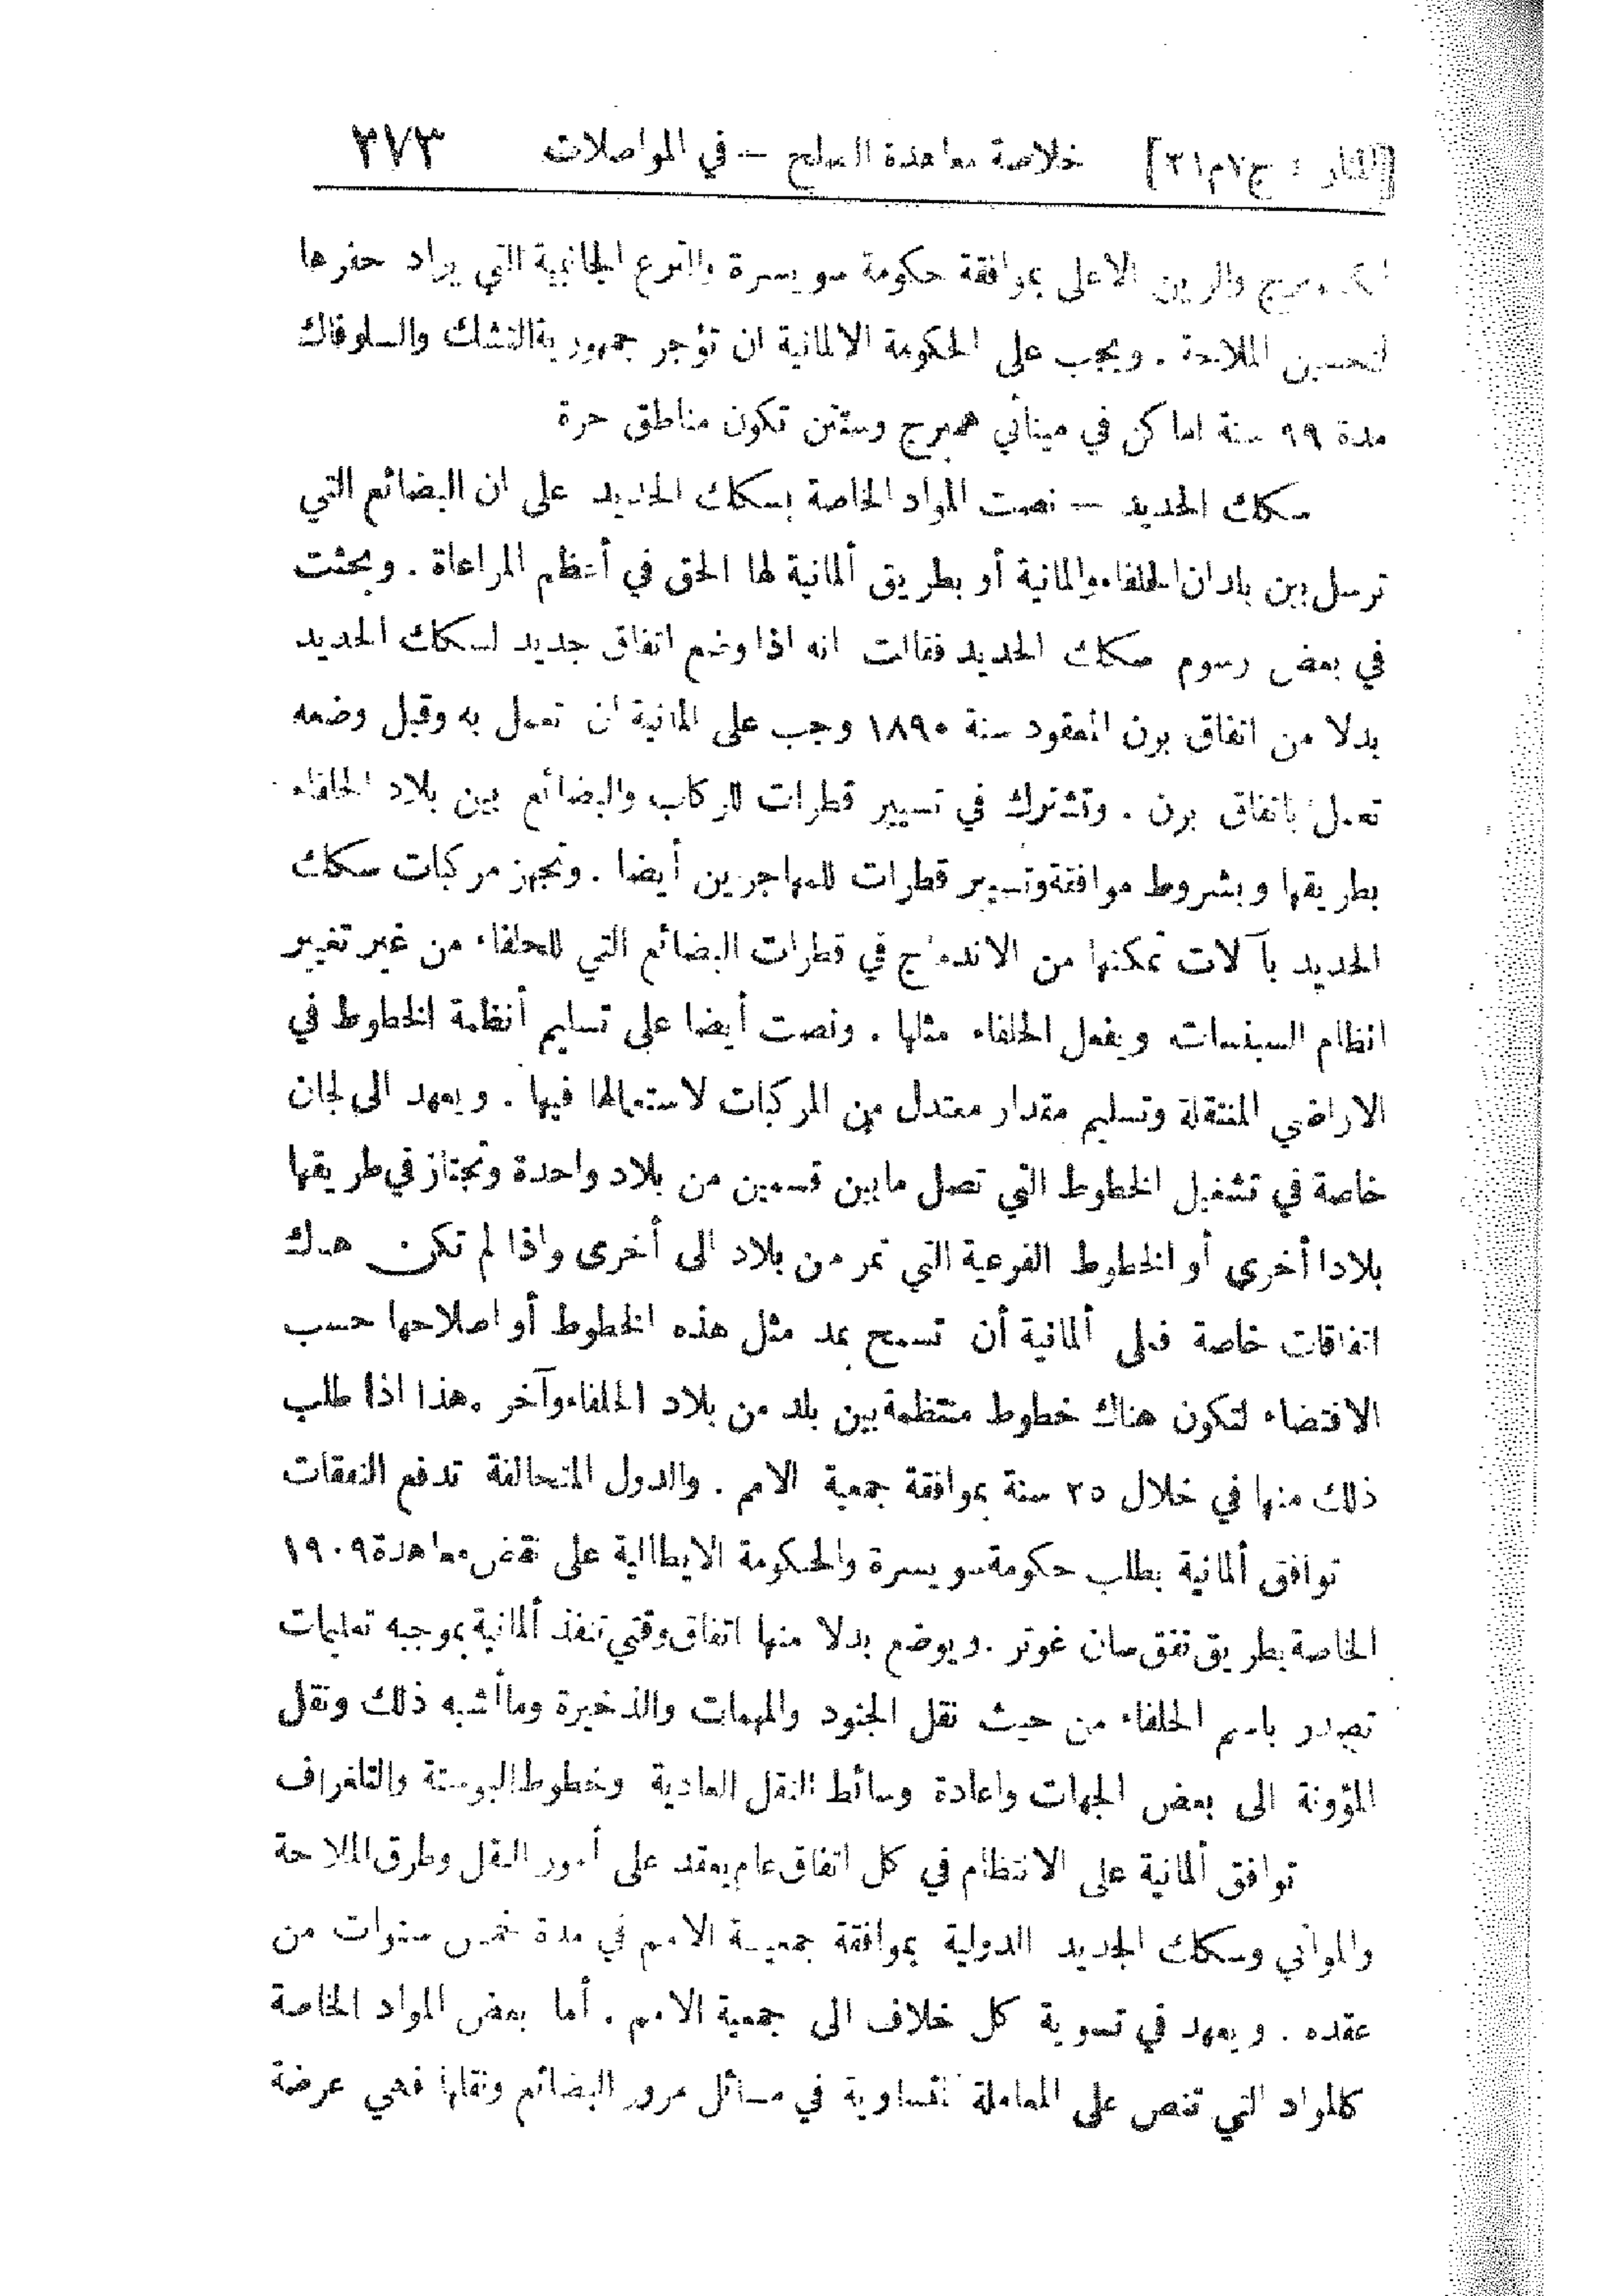 [المنار : ج٧م٢١] خلاصة معاهدة الصلح – في المواصلات ٣٧٣
والرين الاعلى بموافقة حكومة سويسرة والترع الجانبية التي يراد حفرها
لتحسين الملاحة . ويجب على الحكومة الالمانية ان تؤجر جمهورية التشك والسلوفاك
مدة ٩٩ سنة اماكن في مينائي همبرج وستتن تكون مناطق حرة
سكك الحديد – نصت المواد الخاصة بسكك الحديد على ان البضائع التي
ترسل بين بلدان الحلفاء والمانية أو بطريق ألمانية لها الحق في أعظم المراعاة . وبحثت
في بعض رسوم سكك الحديد فقالت انه اذا وضع اتفاق جديد لسكك الحديد
بدلا من اتفاق برن المعقود سنة ١٨٩٠ وجب على المانية ان تعمل به وقبل وضعه
تعمل باتفاق برن . وتشترك في تسيير قطرات للركاب والبضائع بين بلاد الحلفاء
بطريقها وبشروط موافقة وتسيير قطرات للمهاجرين أيضا . وتجهز مركبات سكك
الحديد بآلات تمكنها من الاندماج في قطرات البضائع التي للحلفاء من غير تغيير
انظام السبنسات ويفعل الحلفاء مثلها . ونصت أيضا على تسليم أنظمة الخطوط في
الاراضي المنتقلة وتسليم مقدار معتدل من المركبات لاستعمالها فيها . ويعهد الى لجان
خاصة في تشغيل الخطوط التي تصل ما بين قسمين من بلاد واحدة وتجتاز في طريقها
بلادا أخرى أو الخطوط الفرعية التي تمر من بلاد الى أخرى واذا لم تكن هناك
اتفاقات خاصة فعلى ألمانية أن تسمح بمد مثل هذه الخطوط أو اصلاحها حسب
الاقتضاء لتكون هناك خطوط منتظمة بين بلد من بلاد الحلفاء وآخر . هذا اذا طلب
ذلك منها في خلال ٢٥ سنة بموافقة جمعية الامم . والدول المتحالفة تدفع النفقات
توافق ألمانية بطلب حكومة سويسرة والحكومة الايطالية على نقض معاهدة ١٩٠٩
الخاصة بطريق نفق سان غوتر . ويوضع بدلا منها اتفاق وقتي تنفذ ألمانية بموجبه تعليمات
تصدر باسم الحلفاء من حيث نقل الجنود والمهمات والذخيرة وما أشبه ذلك ونقل
المؤونة الى بعض الجهات واعادة وسائط النقل العادية وخطوط البوستة والتلغراف
توافق ألمانية على الانتظام في كل اتفاق عام يعقد على أمور النقل وطرق الملاحة
والمواني وسكك الحديد الدولية بموافقة جمعيــة الامم في مدة خمس سنوات من
عقده . ويعهد في تسوية كل خلاف الى جمعية الامم . أما بعض المواد الخاصة
كالمواد التي تنص على المعاملة المتساوية في مسائل مرور البضائع ونقلها فهي عرضة